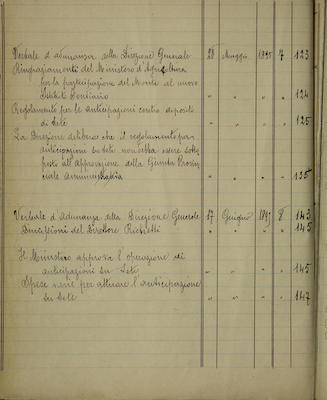 Verbale d'adunanza della Direzione Generale 28 Maggio 1897 7 123
Ringraziamenti del Ministero d'Agricoltura
per la partecipazione del Monte al nuovo
Istituto " " " " 124
Regolamento per le anticipazioni contro deposito
di Sete " " " " 125
La Direzione delibera che il regolamento per
anticipazioni su sete non debba essere sotto
posto all'Approvazione della Giunta Provin
ciale Amministrativa " " " " 135
Verbale d'Adunanza della Direzione Generale 17 Giugno 1897 8 143
Dimissioni del Direttore Richetti " " " " 145
Il Ministero approva l'operazione di
anticipazioni su Sete " " " " 145
Spese varie per attivare l'anticipazione
su Sete " " " " 147